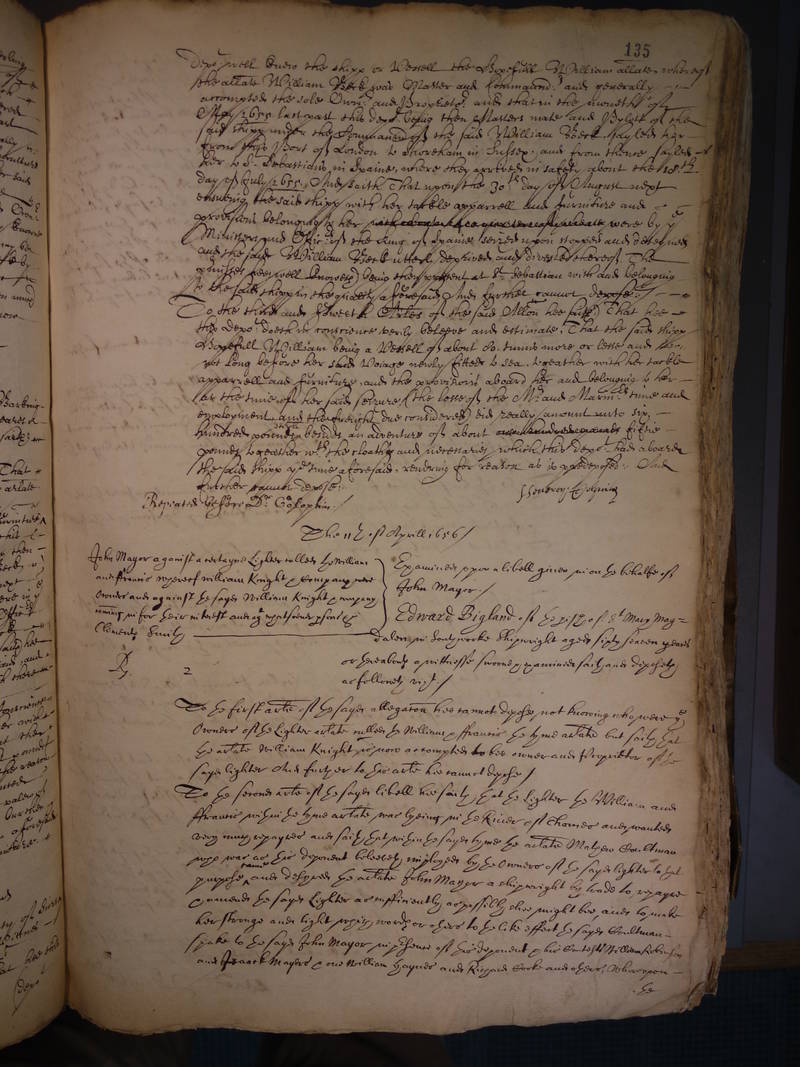 135
depo.t well knew the shipp or Vessell the Hopefull William allate whereof
the allate William Beck was Master and Commander and generally
accompted the sole Owner and Propietor, and that in the moneth of
May 1655 last past this depo.t being then Masters mate and Pylott of the
said shipp under the Command of the said William Beck sayled her
from this Port of London to Shoreham in Sussex, and from thence sayled
her to S.t Sebastians in Spaine, where they arrived in safety about the 10th
day of July 1655. And saith That upon the 30th day of August next
ensueing the said shipp with her tackle apparrell and furniture and
provisions belonging to her were by ye
Ministers and Officrs of the King of Spaine seized upon stopped and deteyned
and the said William Beck utterly deprived and divested thereof The
premisses hee well knoweth being then present at St Sebastian with and belonging
to the said shipp in the quality aforesaid And further cannot depose.
To the third and fowerth Artles of the said Allon hee saith That hee
this depot doeth in conscience verily beleeve and estimate, That the said shipp
Hopefull William being a Vessell of about 80. tunns more or lesse and
not long before her said Voiage newly fitted to sea, togeather with her tackle
apparrell and furniture, and the provisions aboard her and belonging to her
att the time of her said seizure, the losse of the Mr and Marinrs time and
employment, and the freight due considered did really amount unto six
hundred pounds, besides an adventure of about fiftie
pounds togeather wth the cloathes and necessaries which this depot had aboard
the said shipp ye time aforesaid, rendring for reason as is predeposed. And
further cannot depose.
Repeated before Dr. Godolphin.
The 11th of Aprill 1656
John Mayor against a certayne Lighter called the William
and Francis whereof William Knight & Company were
Owners and against the sayd William Knight & company
coming in for their interest and
Clements Smith
Examined upon a libell given in on the behalfe of
John Mayor
Edward Bigland of the pish of St Mary Mag=
dalen in Southwarke Shipwright aged sixty seaven yeares
or thereabouts a witnesse sworne & examined saith and deposeth
as followeth vizt
2
To the first arte of the sayd allegation hee cannot depose, not knowing who were ye
Owners of the Lighter arlate called the William & ffrancis the tyme arlated but saith that
the arlate William Knight is now accompted to bee owner and Proprietor of the
sayd lighter And further to this arte hee cannot depose
To the second arte of the sayd libell hee saith, that the Lighter the William and
ffrancis within the tyme arlate was lyeing in the River of Thames and wanted
very much repayres and saith, that within the sayd tyme the arlate Mathew Coultman
who was as this deponent beleeveth employed by the Owners of the sayd lighter to that
purpose came and desyred the arlate John Mayor a shipwright by trade to repayre
& amend the sayd Lighter as sufficiently as possibly could might bee, and to make
her stronge and tight using words or others to the like effect the sayd Coultman
spake to the sayd John Mayor in presence of this deponent & his Contest William Robinson
and Francis Mayors & one William Haynes and Richard Cooke and others. Whereupon
he